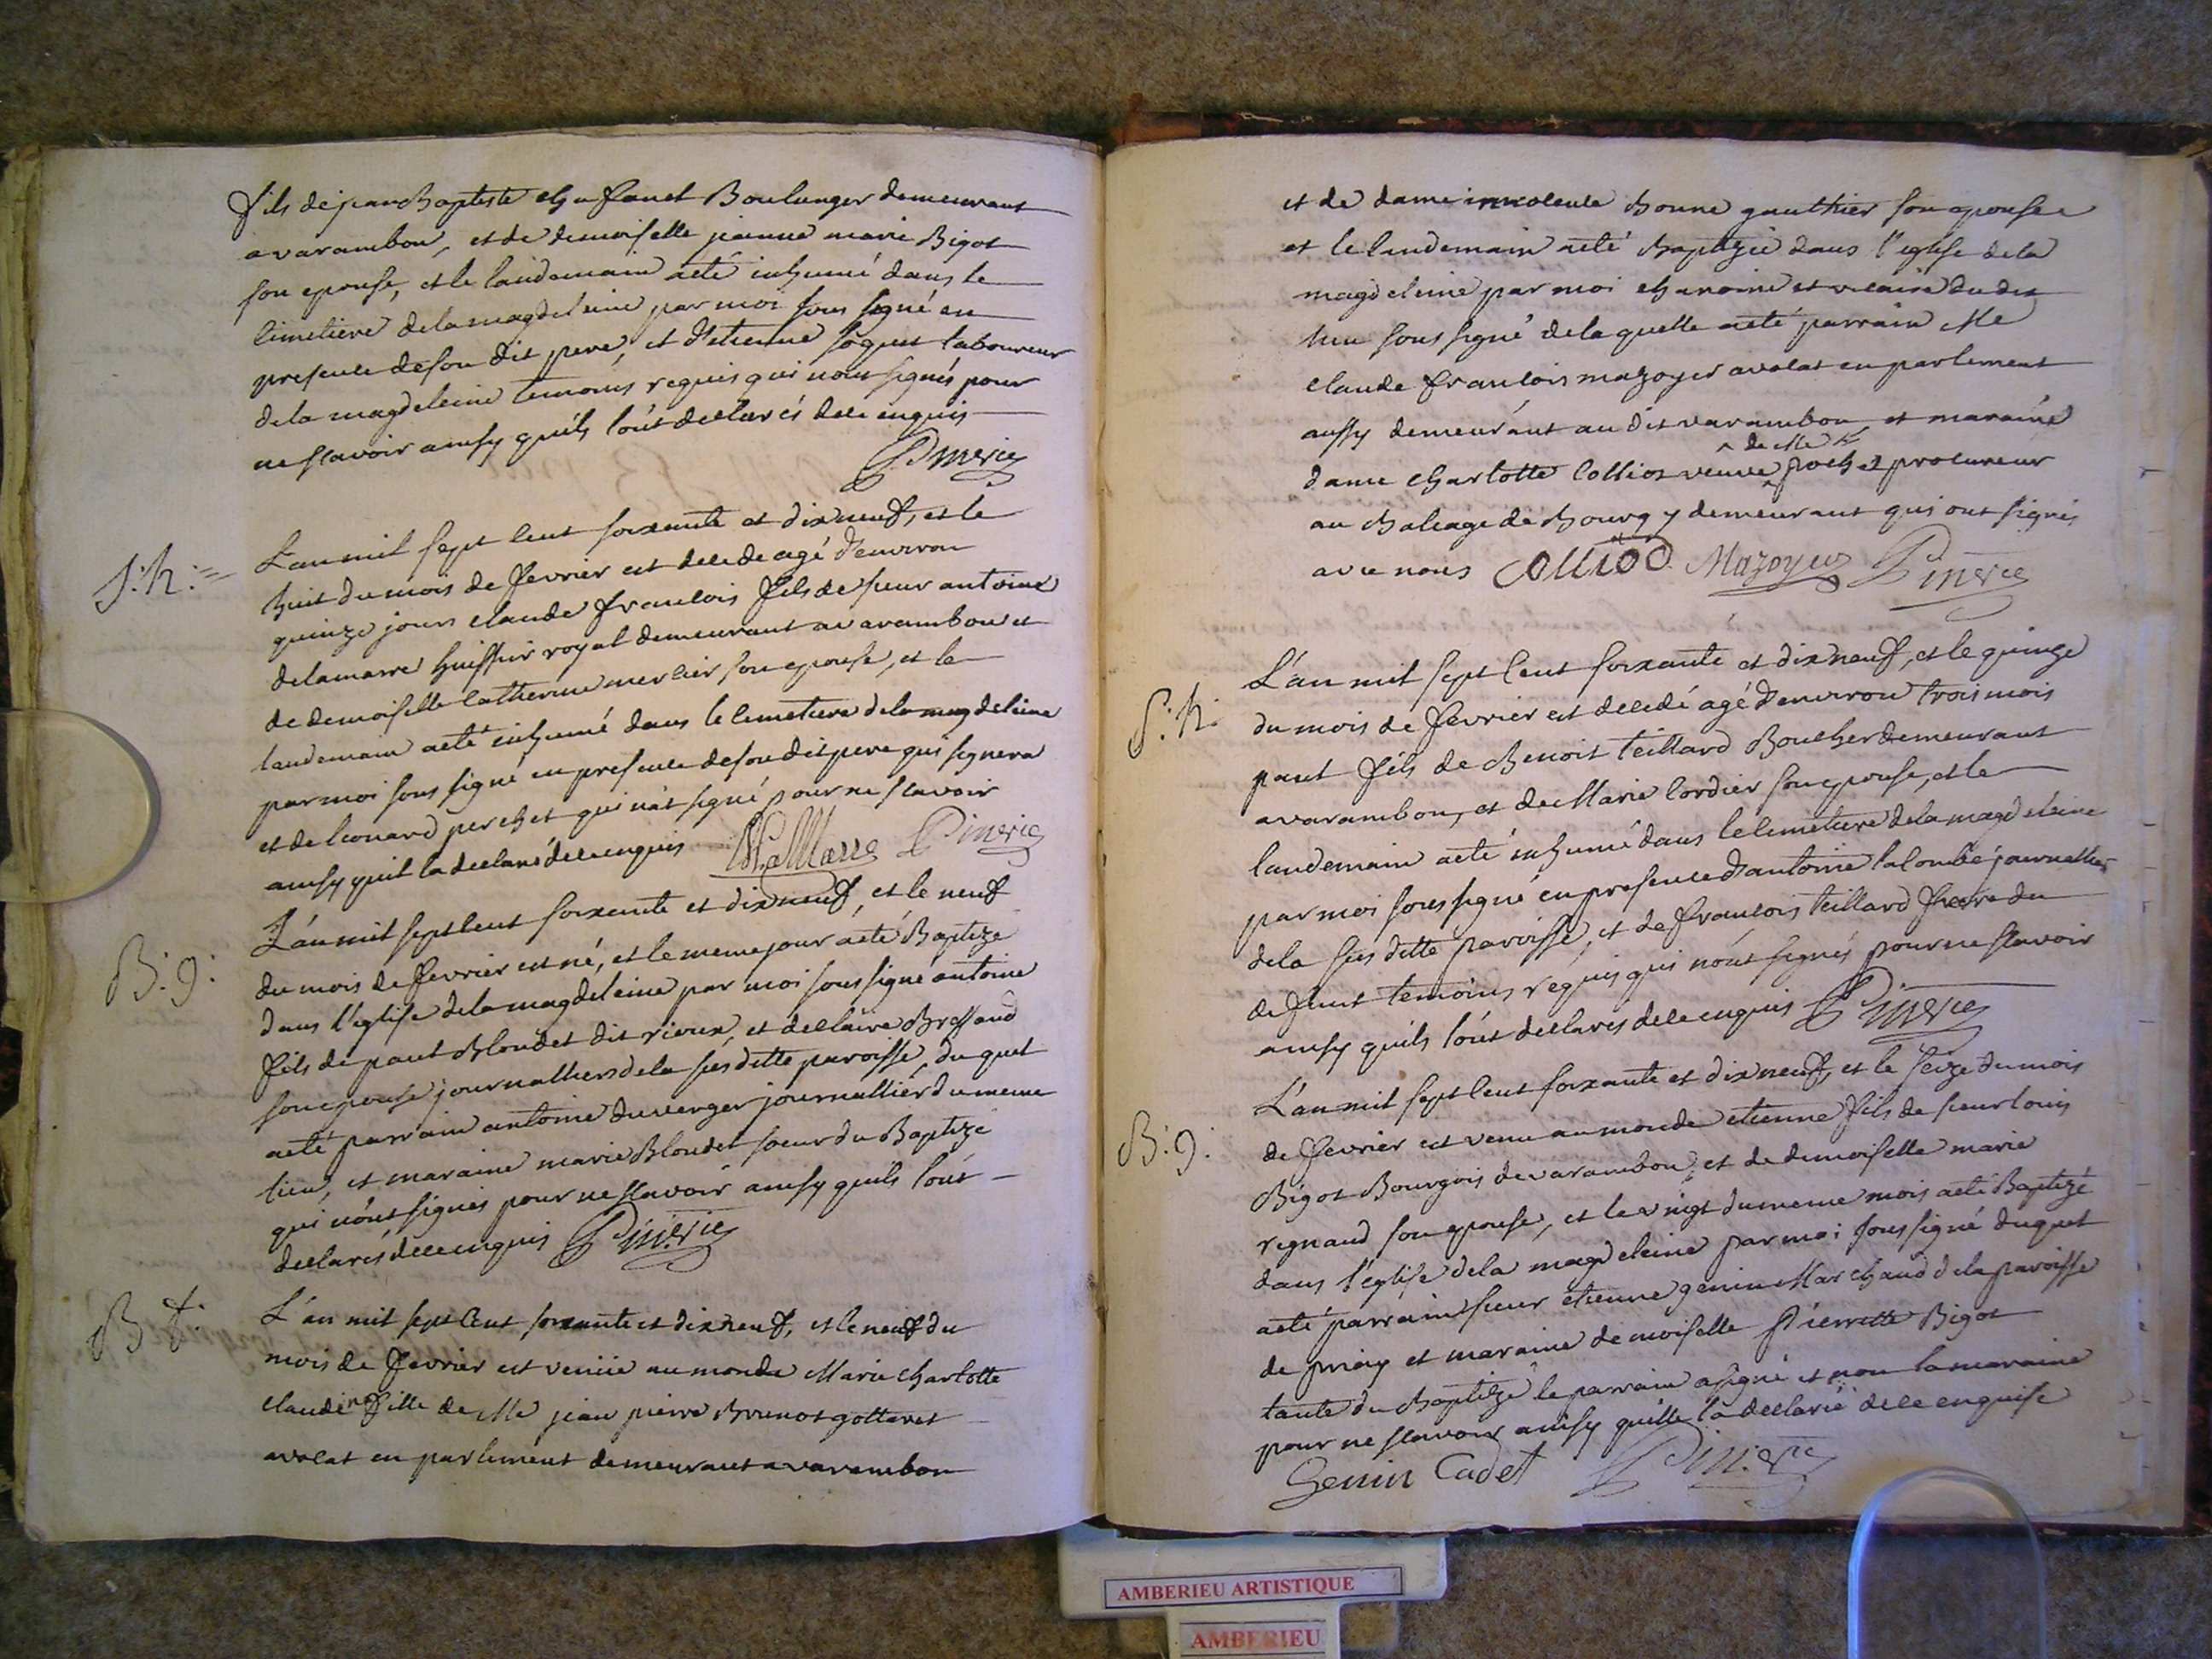 fils de jean Baptiste chafanel Boulanger demeurant
a varambon, et de demoiselle jeanne marie Bigot
son epouse, et le landemain aeté inhumé dans le
cimetiere dela magdeleine par moi sous signé en
presence deson dit pere, et d'etienne foquet laboureur
dela magdeleine temoins requis qui nont signés pour
ne scavoir ainsy quils lont declarés dece enquis
Pinerie
S: h:
L'an mil sept cent soixante et dixneuf, et le
huit du mois de fevrier est decede agé d'environ
quinze jours claude francois fils de sieur antoine
delamarre huissier royal demeurant a varambon et
de demoiselle catherine mercier son epouse, et le
landemain aeté inhumé dans le cimetiere dela magdeleine
par moi sous signé en presence deson dit pere qui signera
et de leonard perchet qui nat signé pour ne scavoir
ainsy quil la declaré dece enquis DelaMarre Pinerie
B: g:
L'an mil sept cent soixante et dixneuf, et le neuf
du mois de fevrier est né, et le meme jour aeté Baptize
dans l'eglise dela magdeleine par moi sous signé antoine
fils de paul Blondet dit vieux, et declaire Bressand
son epouse journalliers dela sus ditte paroisse, du quel
aeté parrain antoine Duverger journallier du meme
lieu, et maraine marie Blondet soeur du Baptizé
qui nont signés pour ne scavoir ainsy quils lont
declarés dece enquis Pinerie
B f:
L'an mil sept cent soixante et dixneuf, et le neuf du
mois de fevrier est venüe au monde Marie charlotte
claudine fille de Me jean pierre Brunot gottaret
avocat en parlement demeurant a varambon
et de dame innocente Bonne gauthier son epouse
et le landemain aeté Baptizée dans l'eglise dela
magdeleine par moi chanoine et vicaire du dit
lieu sous signé dela quelle aeté parrain Me
claude francois mazoyer avocat en parlement
aussy demeurant au dit varambon, et maraine
dame charlotte colliot veuve ^ de Me pochet procureur
au Baliage de Bourg y demeurant qui ont signés
avec nous COLLIOD Mazoyer Pinerie
S: h:
L'an mil sept cent soixante et dixneuf, et le quinze
du mois de fevrier est decedé agé d'environ trois mois
paul fils de Benoit teillard Boucher demeurant
a varambon, et de Marie Cordier son epouse, et le
landemain aeté inhumé dans le cimetiere dela magdeleine
par moi sous signé en presence d'antoine lacombe journallier
dela sus ditte paroisse, et de francois teillard frere du
defunt temoins requis qui nont signés pour ne scavoir
ainsy quils lont declarés dece enquis Pinerie
B: g:
L'an mil sept cent soixante et dixneuf, et le seize du mois
de fevrier est venu au monde etienne fils de sieur louis
Bigot Bourgois de varambon, et de demoiselle marie
regnaud son epouse, et le vingt du meme mois aeté Baptizé
dans l'eglise dela magdeleine par moi sous signé du quel
aeté parrain sieur etienne genin Marchand dela paroisse
de priay et maraine demoiselle Pierrette Bigot
tante du Baptizé le parrain a signé et non la maraine
pour ne scavoir ainsy quelle la declaré dece enquise
Genin Cadet Pinerie
AMBERIEU ARTISTIQUE
AMBERIEU